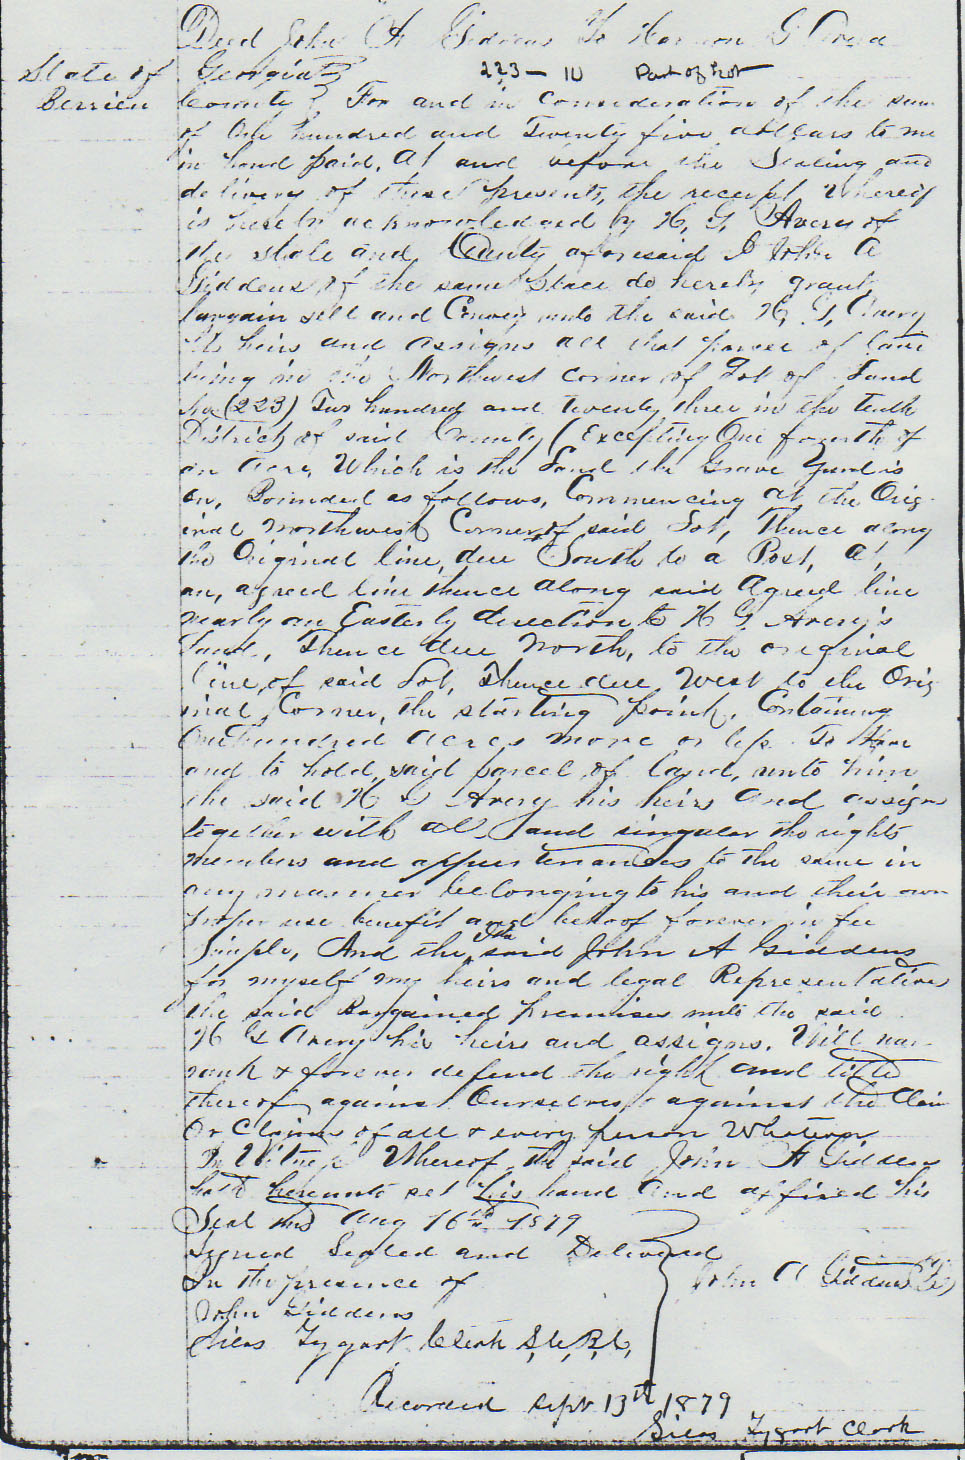 Deed John A Giddens To G
223 - 10 Part of Lot
State of Georgia
Berrien County } For and in Consideration of the sum
of One hundred and Twenty five dollars to me
in hand paid, At and before the Sealing and
delivery of these presents, the receipt Whereof
is hereby acknowledged by H, G, Avery of
the state and County aforesaid I John A
Giddens of the same place do hereby grant
bargain sell and Convey unto the said H, G, Avery
his heirs and assigns all that parcel of land
being in the Northwest corner of Lot of Land
No (223) Two hundred and twenty three in the tenth
District of said County (Excepting One fourth of
an acre, Which is the Land the Grave Yard is
on, Bounded as follows, Commencing at the Orig-
inal northwest Corner of said Lot, Thence along
the Original line, due South to a Post, at
an, agreed line thence along said Agreed line
nearly an Easterly direction to H G Avery's
Land, Thence due North, to the original
line, of said Lot, Thence due West to the Orig
inal Corner, the starting point, Containing
One hundred acres more or less To Have
and to hold said parcel of land, unto him
the said H G Avery his heirs and assigns
together with all and singular the rights
members and appurtenances to the same in
any manner belonging to his and their own
proper use benefit and behoof forever in fee
Simple, And the said John A Giddens
for myself my heirs and legal Representatives
the said Bargained premises unto the said
H G Avery his heirs and assigns. Will war-
rant & forever defend the right and title
thereof against Ourselves & against the Claim
Or Claims of all & every person Whatever
In Witness Whereof the said John A Giddens
hath hereunto set his hand and affixed his
Seal this Aug 16th 1879
Signed Sealed and Delivered
In the presence of
John A Giddens
John Giddens
Silas Tygart Clerk S, C, B, C,
Recorded Sept 13th 1879
Silas Tygart Clerk